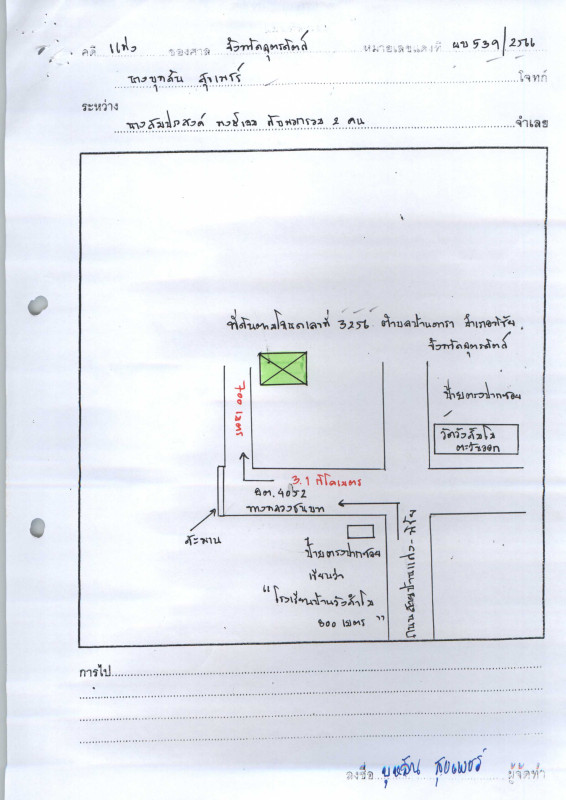 คดี แพ่ง ของศาล จังหวัดอุตรดิตถ์ หมายเลขแดงที่ ผบ 539/2566
นางบุหลัน สุขเพชร์ โจทก์
ระหว่าง
นาง กับพวกรวม 2 คน จำเลย
ที่ดินตามโฉนดเลขที่ 3256 ตำบลบ้านดารา อำเภอพิชัย
จังหวัดอุตรดิตถ์
700 เมตร
ป้ายตรงปากซอย
วัดวังสัมโม
ตะวันออก
3.1 กิโลเมตร
อต. 4052
ทางหลวงชนบท
สะพาน
ป้ายตรงปากซอย
เขียนว่า
"โรงเรียนบ้านวังสัมโม
800 เมตร"
ถนนสายบ้านแก่ง-พิชัย
การไป
ลงชื่อ บุหลัน สุขเพชร์ ผู้จัดทำ